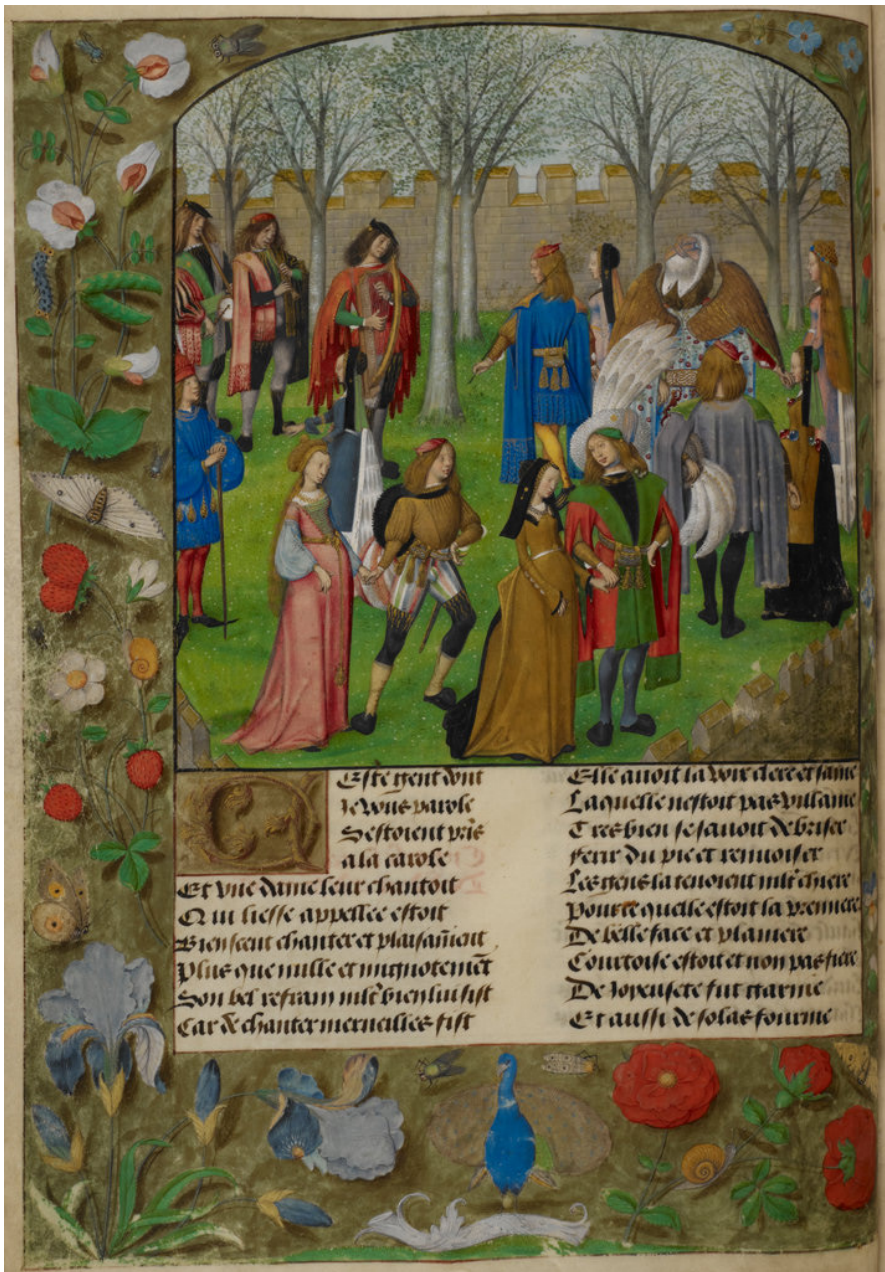 CEste gent dont
Je vous parole
Sestoient pris
a la carole
Et vne dame leur chantoit
Qui liesse appellee estoit
Bien sceut chanter et plaisam̄ent
Plus que nulle et mignotemēt
Son bel refrain mlt bien lui fist
Car de chanter merueilles fist
Elle auoit la voix clere et saine
Laquelle nestoit pas villaine
Tresbien se sauoit debriser
Ferir du pie et renuoiser
Les gens la tenoient mlt chiere
Pource quelle estoit la premiere
De belle face et planiere
Courtoise estoit et non pas fiere
De joyeusete fut garnie
Et aussi de solas fournie